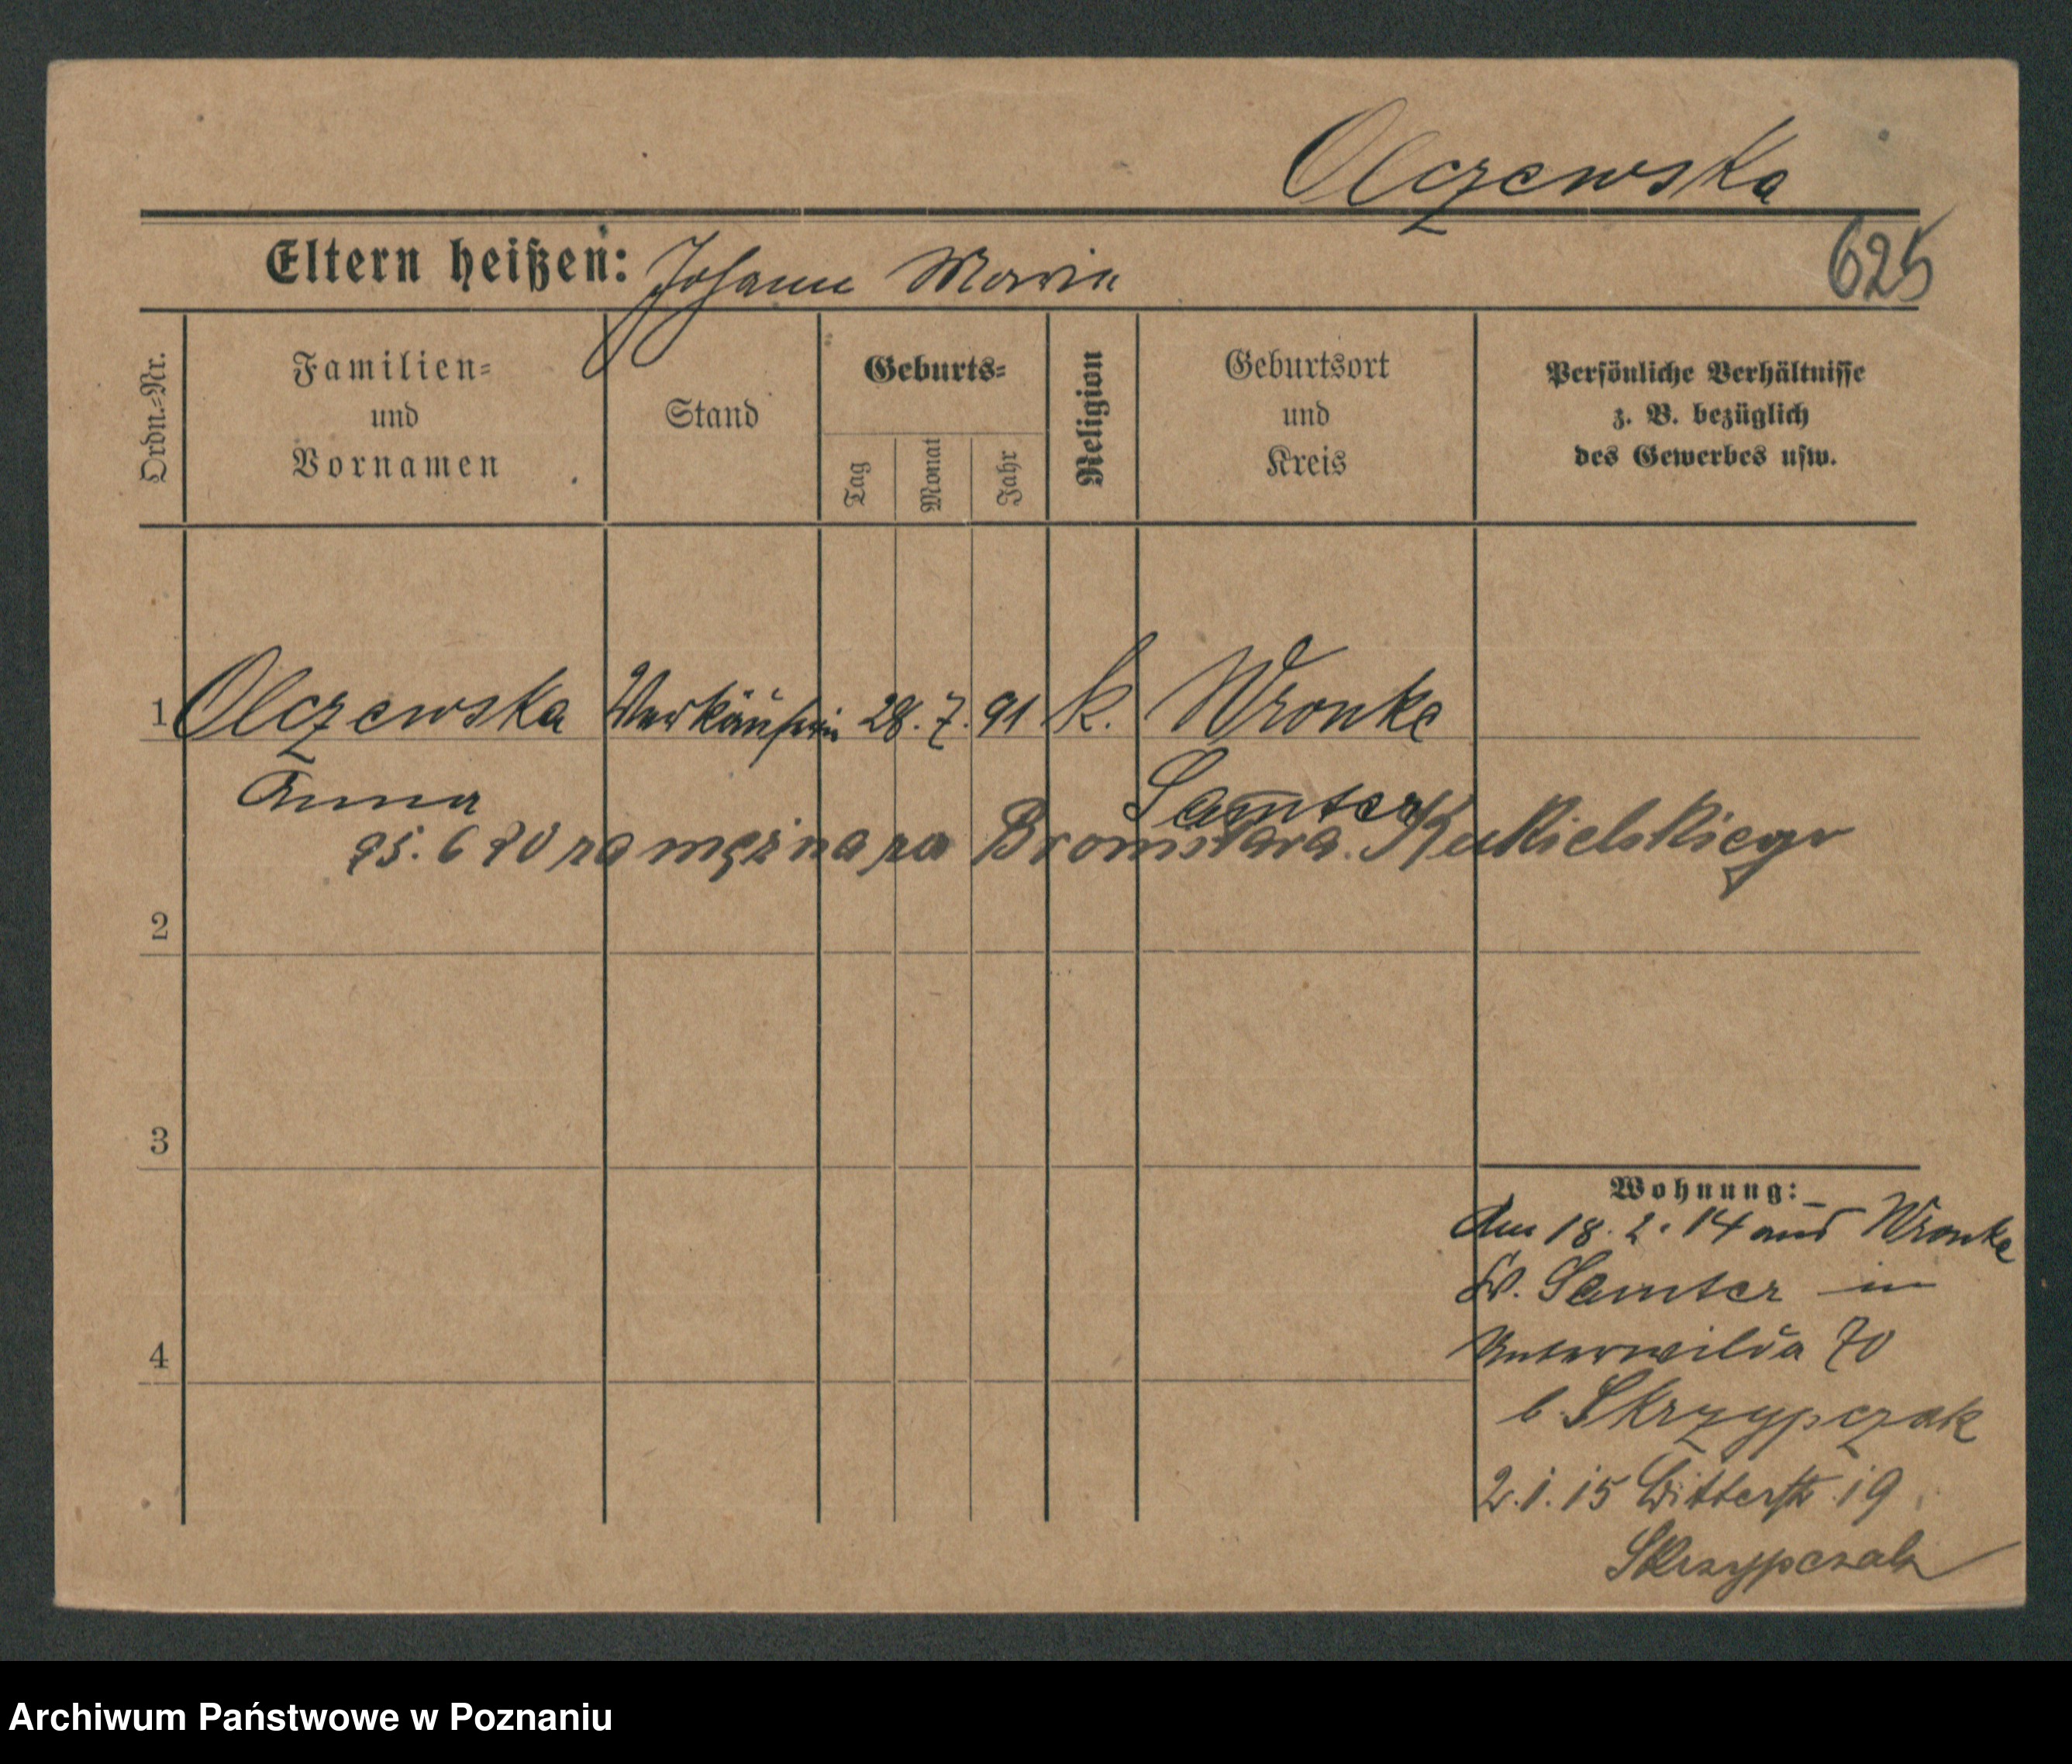 Olczewska
Eltern heißen: Johann Maria
625
Ordn.=Nr.
Familien=
und
Vornamen
Stand
Geburts=
Tag
Monat
Jahr
Religion
Geburtsort
und
Kreis
Persönliche Verhältnisse
z. B. bezüglich
des Gewerbes usw.
1 Olczewska Verkäuferin 28. 7. 91 k. Wronke
Anna Samter
6 20 za mąż na za Bronisława Kukielskiego
2
3
4
Wohnung:
Am 18. 2. 14 aus Wronke
Kr. Samter in
Unterwilda 70
b. Skrzypczak
2.1.15 Bitterstr. 19
Skrzypczak
Archiwum Państwowe w Poznaniu